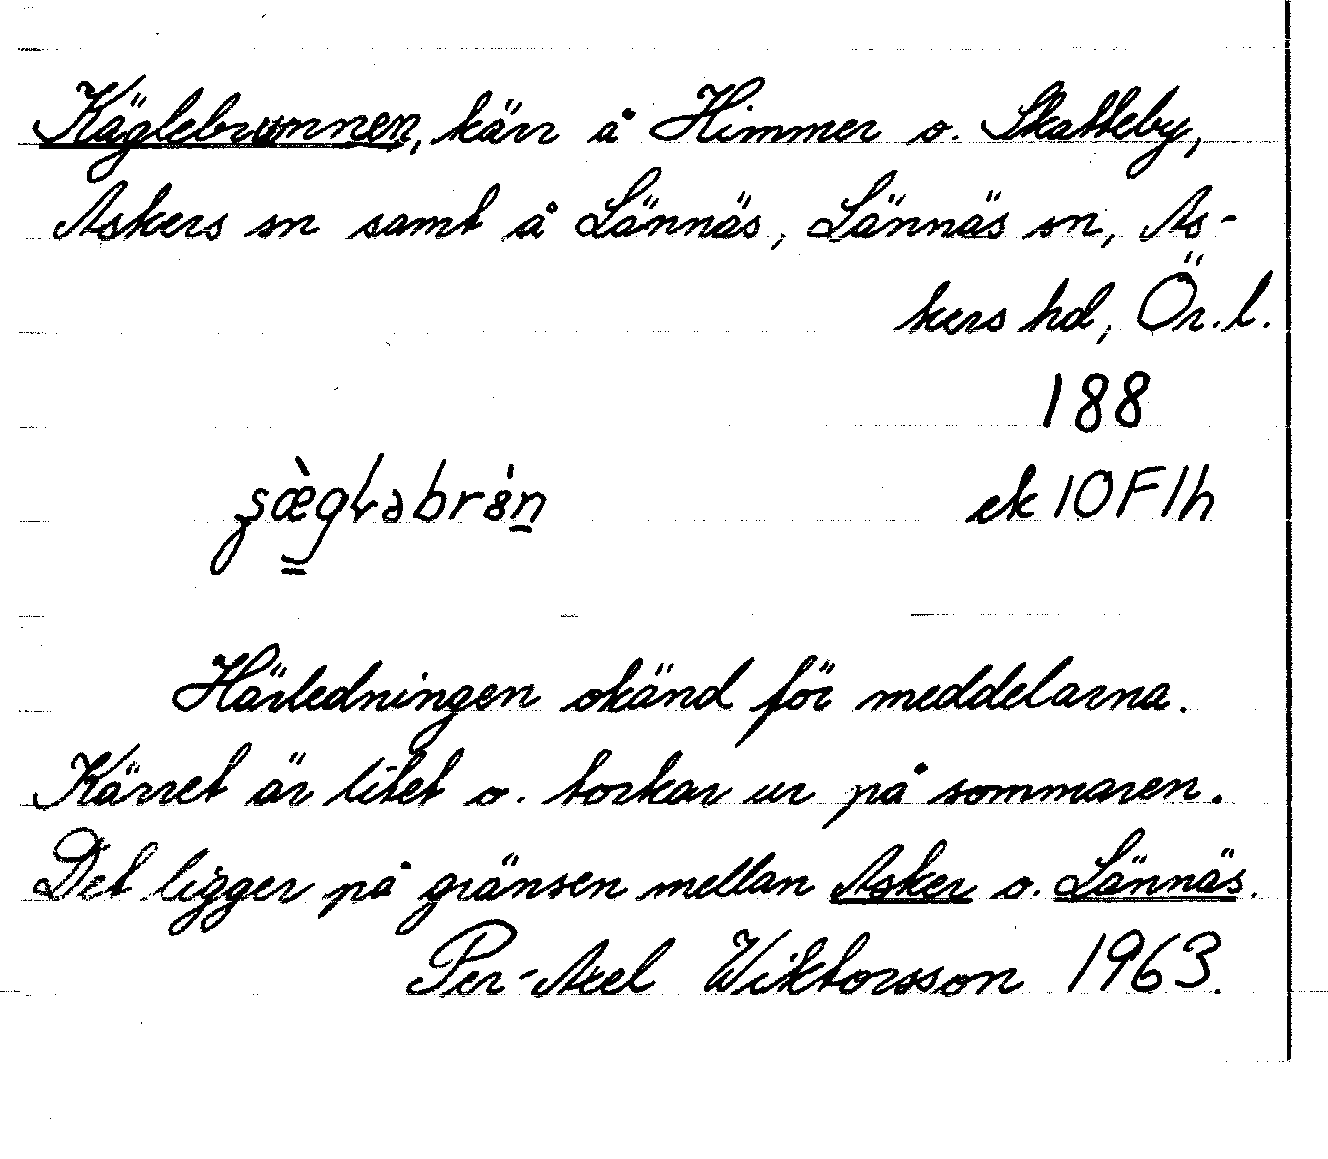 Käglebrunnen, kärr å Himmer o. Skatteby,
Askers sn samt å Lännäs, Lännäs sn, As-
kers hd, Ör. l.
188
ek 10F1h
Härledningen okänd för meddelarna.
Kärret är litet o. torkar ur på sommaren.
Det ligger på gränsen mellan Asker o. Lännäs.
Per-Axel Wiktorsson 1963.